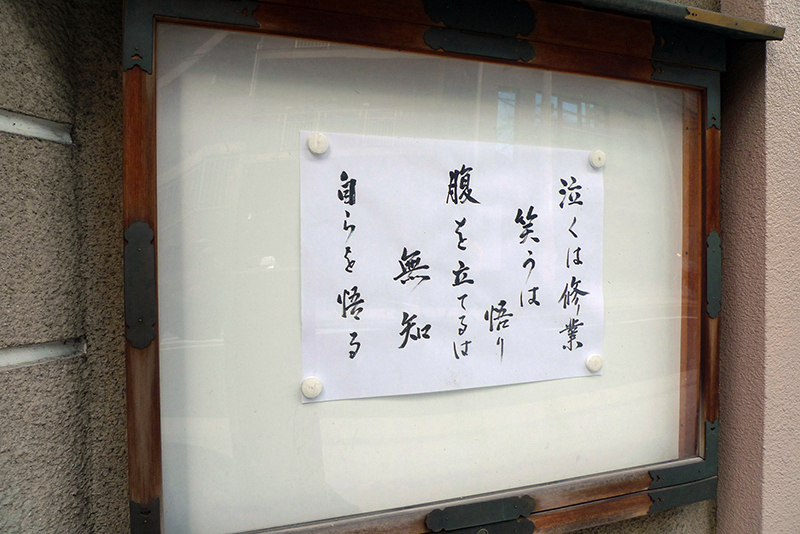 泣くは修業
笑うは
悟り
腹を立てるは
無知
自らを悟る